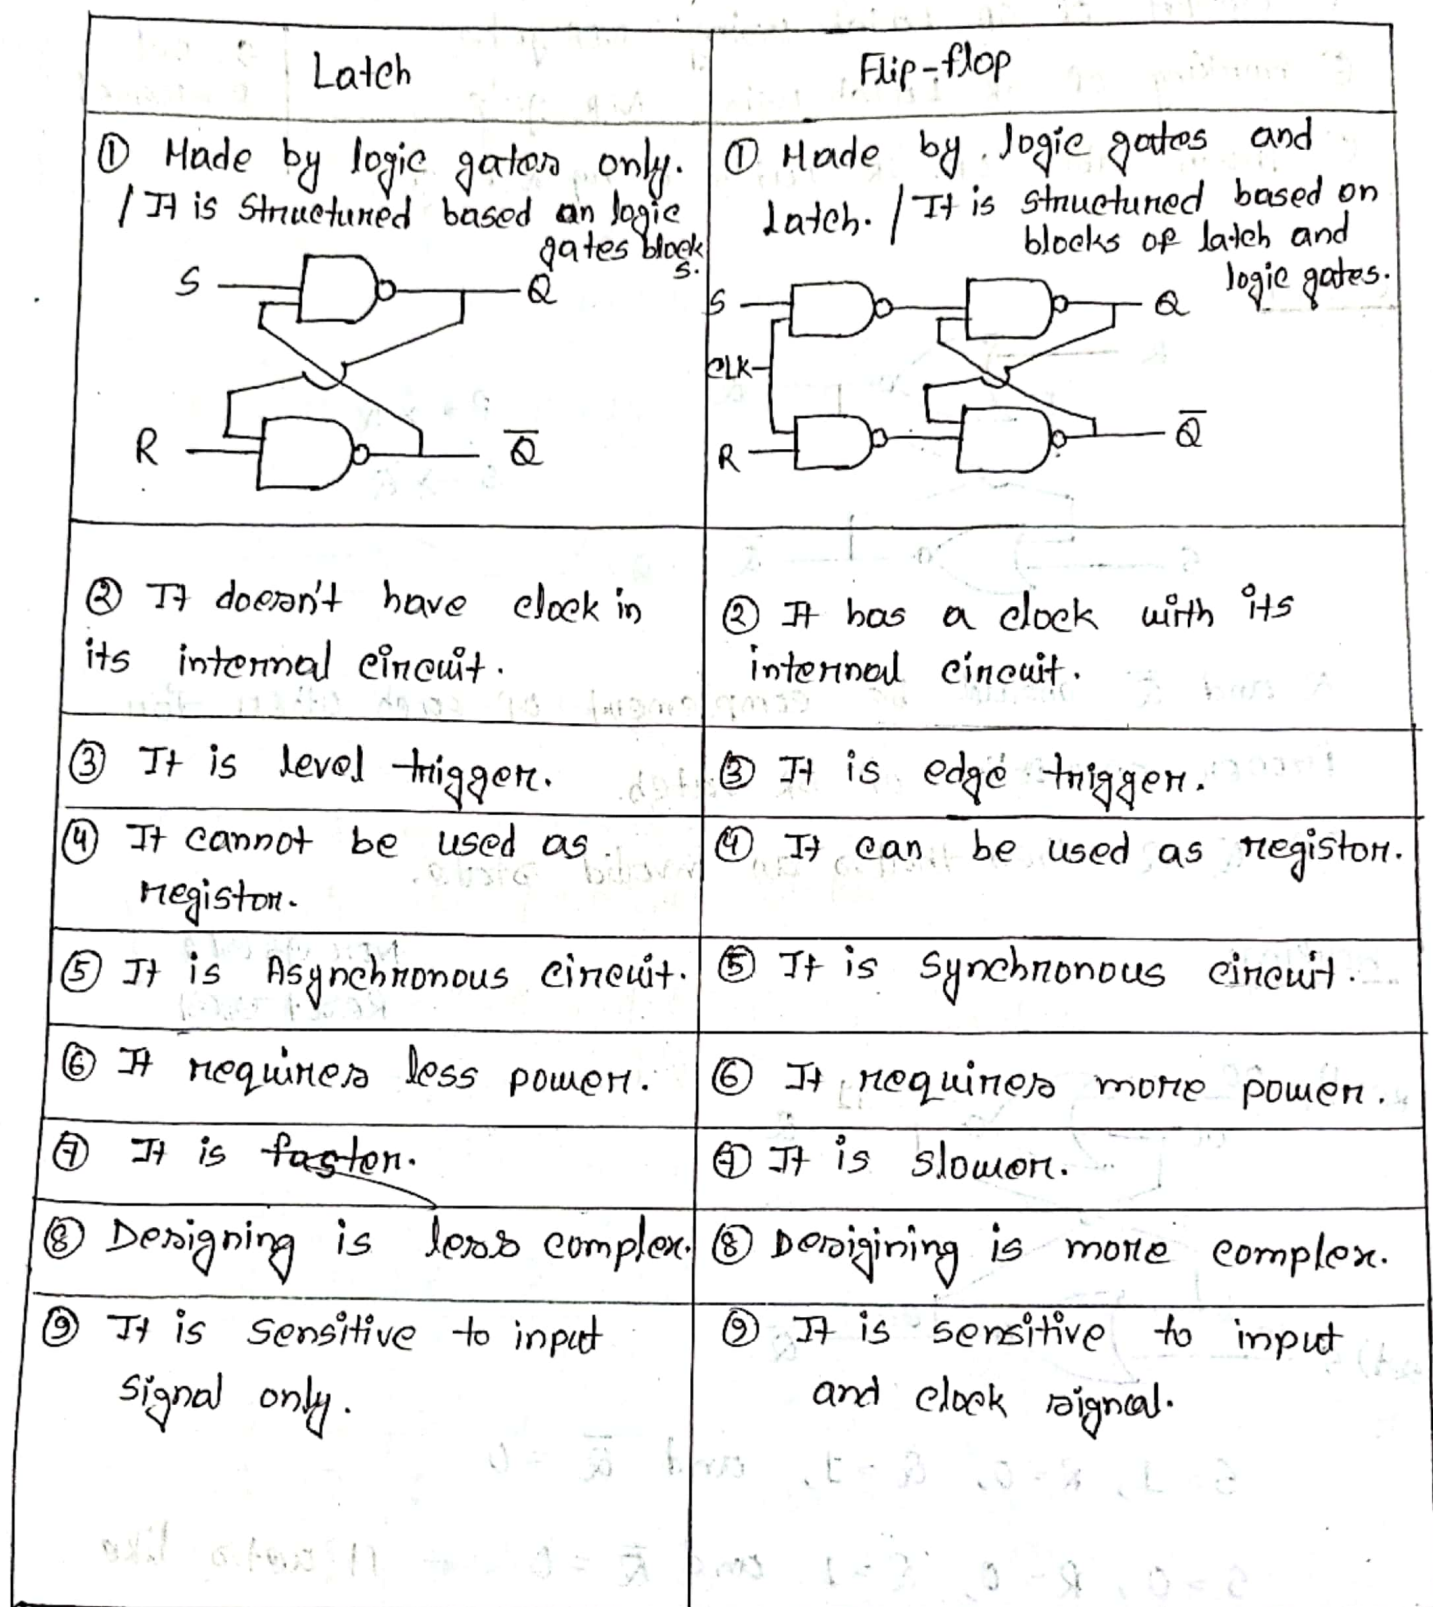 Latch
Flip-flop
① Made by logic gates only.
/ It is structured based on logic
gates block
s.
S
Q
R
Q̅
① Made by logic gates and
Latch. / It is structured based on
blocks of latch and
logic gates.
S
Q
CLK
R
Q̅
② It doesn't have clock in
its internal circuit.
② It has a clock with its
internal circuit.
③ It is level trigger.
③ It is edge trigger.
④ It cannot be used as
registor.
④ It can be used as registor.
⑤ It is Asynchronous circuit.
⑤ It is synchronous circuit.
⑥ It requires less power.
⑥ It requires more power.
⑦ It is faster.
⑦ It is slower.
⑧ Designing is less complex.
⑧ Desigining is more complex.
⑨ It is sensitive to input
signal only.
⑨ It is sensitive to input
and clock signal.